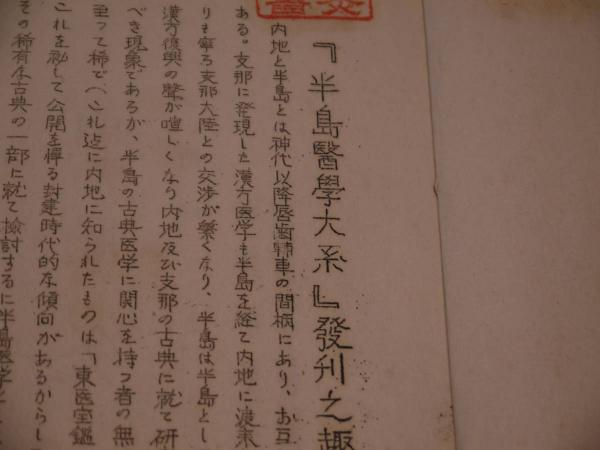 『半島醫學大系』發刋之趣
内地と半島とは神代以降唇歯輔車の間柄にあり、お互
ある。支那に発現した漢方医学も半島を経て内地に渡来
りも寧ろ支那大陸との交渉が繁くなり、半島は半島とし
漢方復興の聲が喧しくなり内地及び支那の古典に就て研
べき現象であるか、半島の古典医学に関心を持つ者の無
至って稀で、これ迠に内地に知られたものは「東医宝鑑
これを秘して公開を憚る封建時代的な傾向があるからし
その稀有な古典の一部に就て検討するに半島医学と